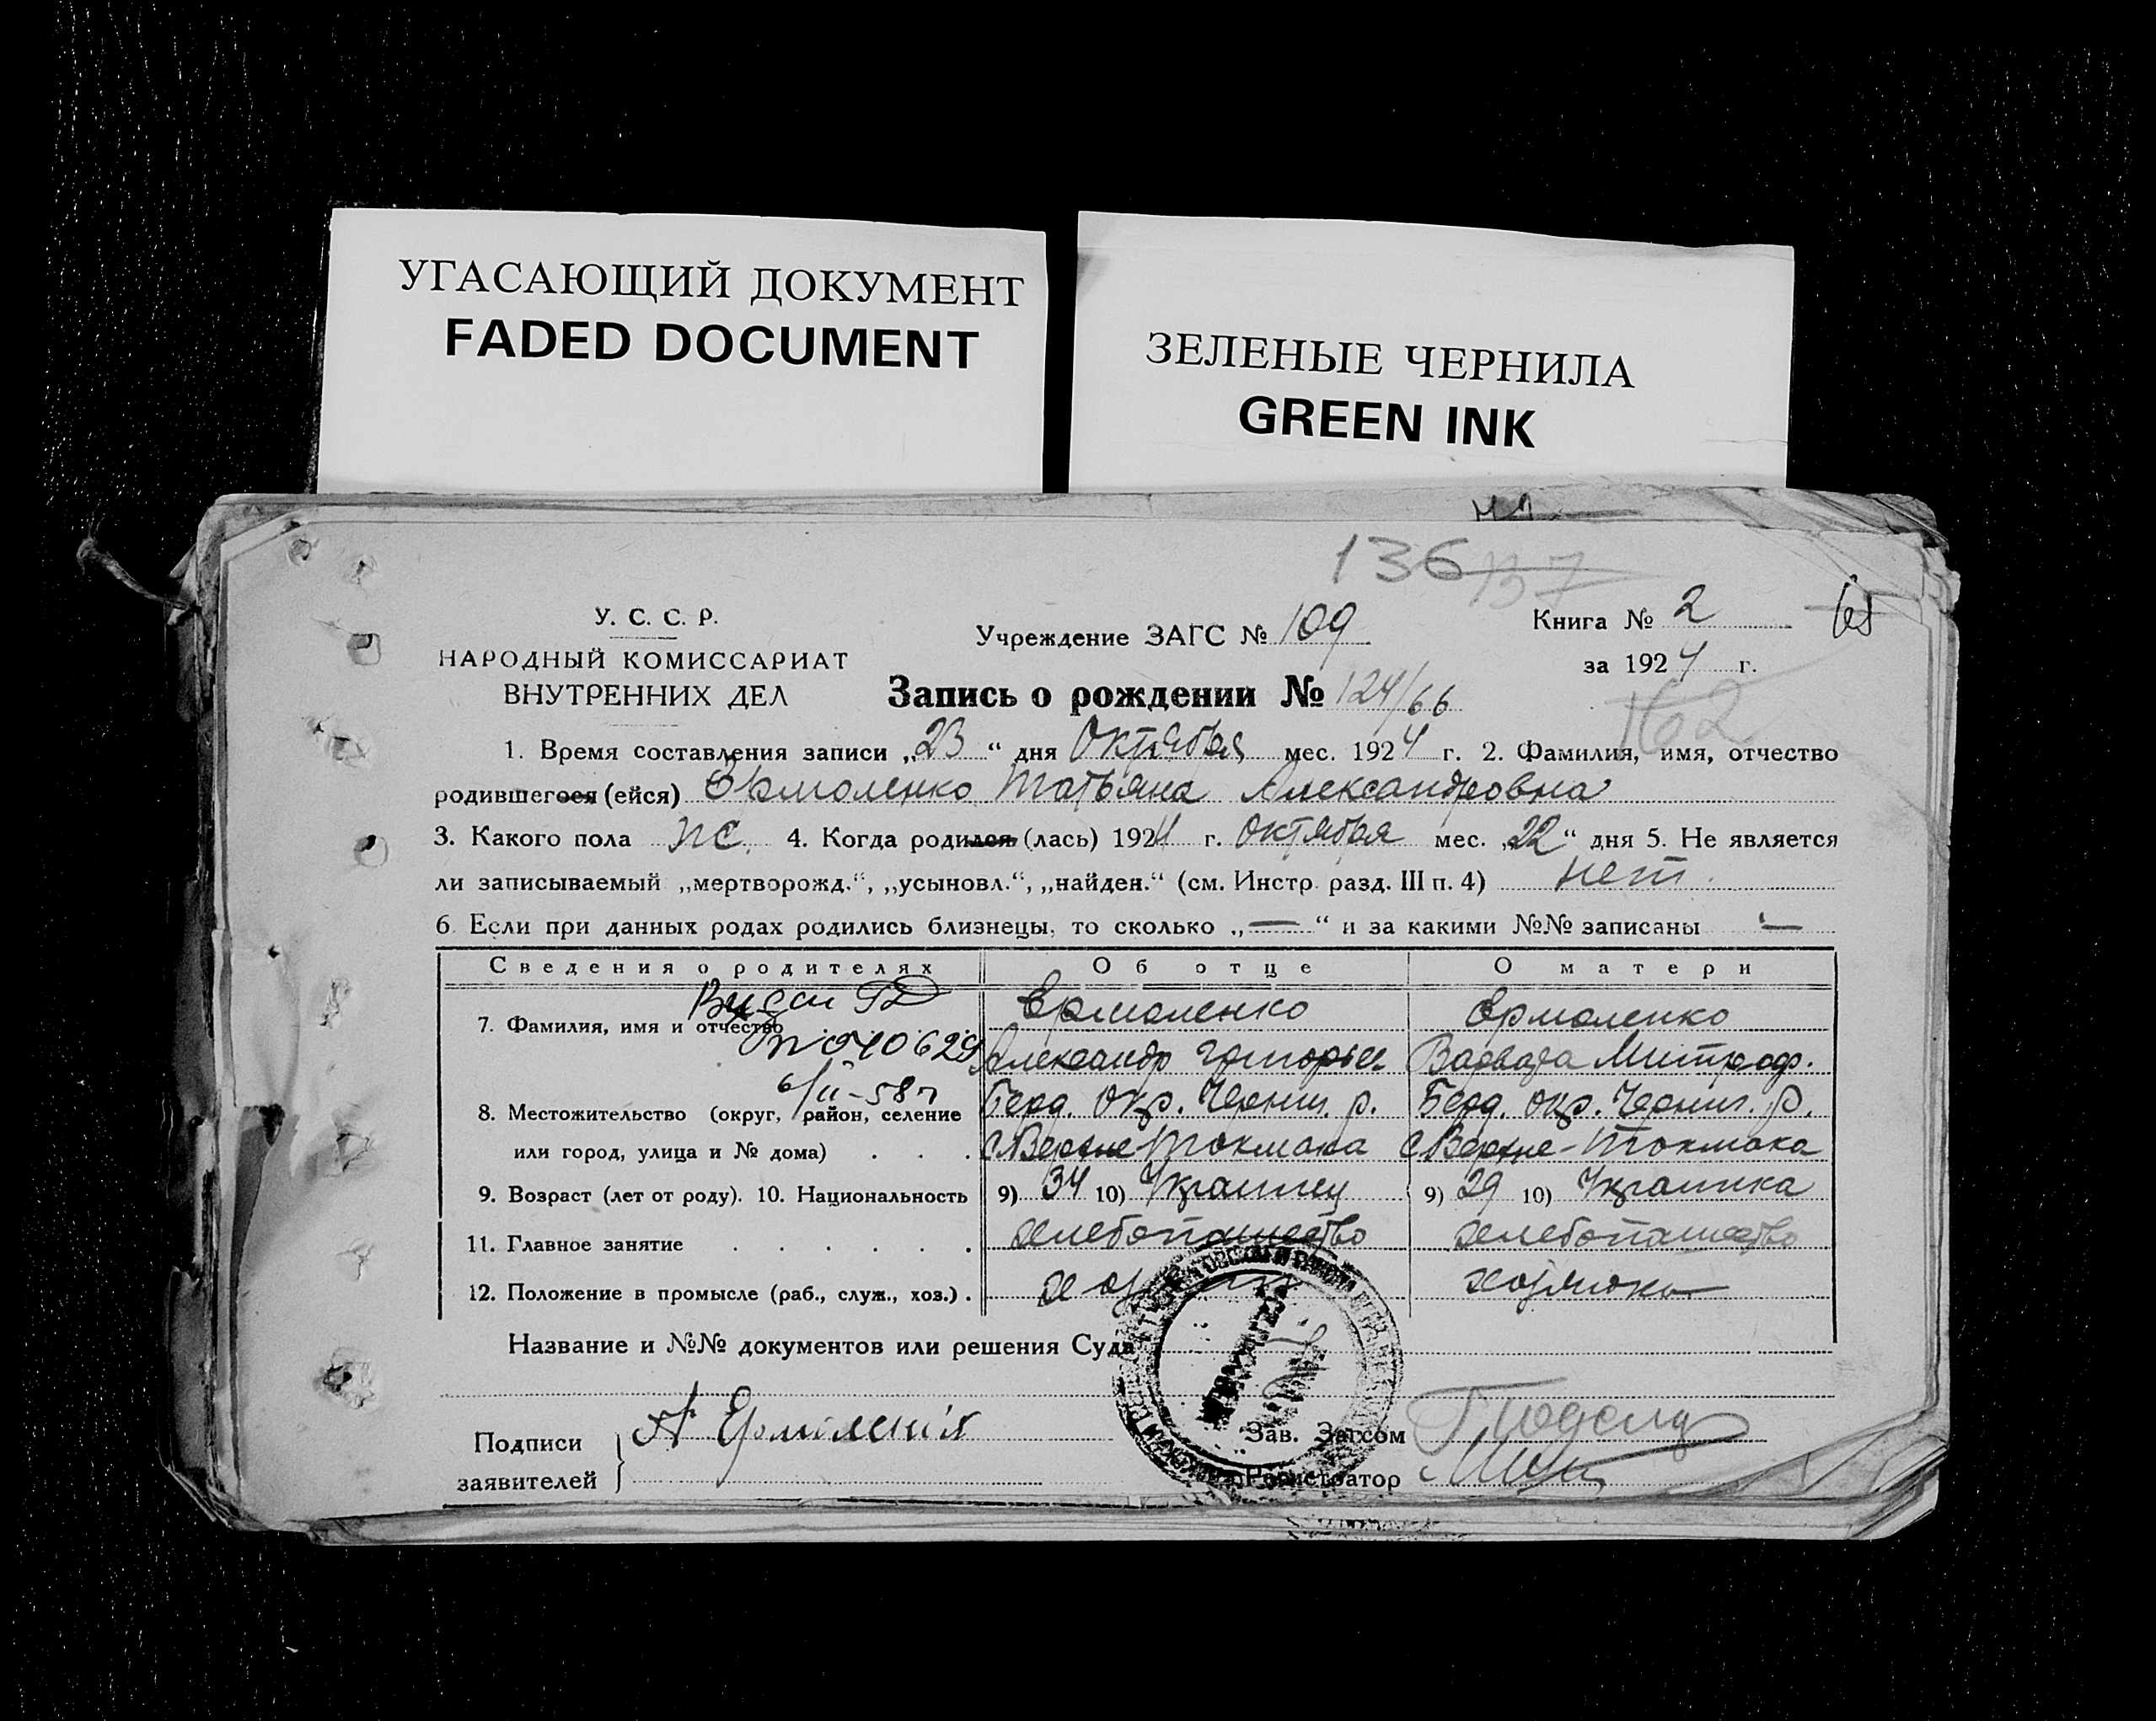 УГАСАЮЩИЙ ДОКУМЕНТ
FADED DOCUMENT
ЗЕЛЕНЫЕ ЧЕРНИЛА
GREEN INK
136 137
У. С. С. Р.
НАРОДНЫЙ КОМИССАРИАТ
ВНУТРЕННИХ ДЕЛ
Учреждение ЗАГС № 109
Книга № 2
за 1924 г.
162
Запись о рождении № 124/66
1. Время составления записи „23“ дня Октября мес. 1924 г. 2. Фамилия, имя, отчество
родившегося (ейся) Ермоленко Татьяна Александровна
3. Какого пола ж. 4. Когда родился (лась) 1924 г. октября мес. „22“ дня 5. Не является
ли записываемый „мертворожд.“, „усыновл.“, „найден.“ (см. Инстр. разд. III п. 4) нет.
6. Если при данных родах родились близнецы, то сколько „—“ и за какими №№ записаны —
Сведения о родителях Об отце О матери
7. Фамилия, имя и отчество Ермоленко Ермоленко
040629 Александр Григорьев. Варвара Митроф.
6/II-58г
8. Местожительство (округ, район, селение Берд. окр. Черниг. р. Берд. окр. Черниг. р.
или город, улица и № дома) . . . с. Верхне Токмака с. Верхне-Токмака
9. Возраст (лет от роду). 10. Национальность 9) 34 10) Украинец 9) 29 10) Украинка
11. Главное занятие . . . . . . хлебопашество хлебопашество
12. Положение в промысле (раб., служ., хоз.) . хозяин хозяйка
Название и №№ документов или решения Суда
Подписи
заявителей
А Ермоленко
Зав. Загсом
Регистратор